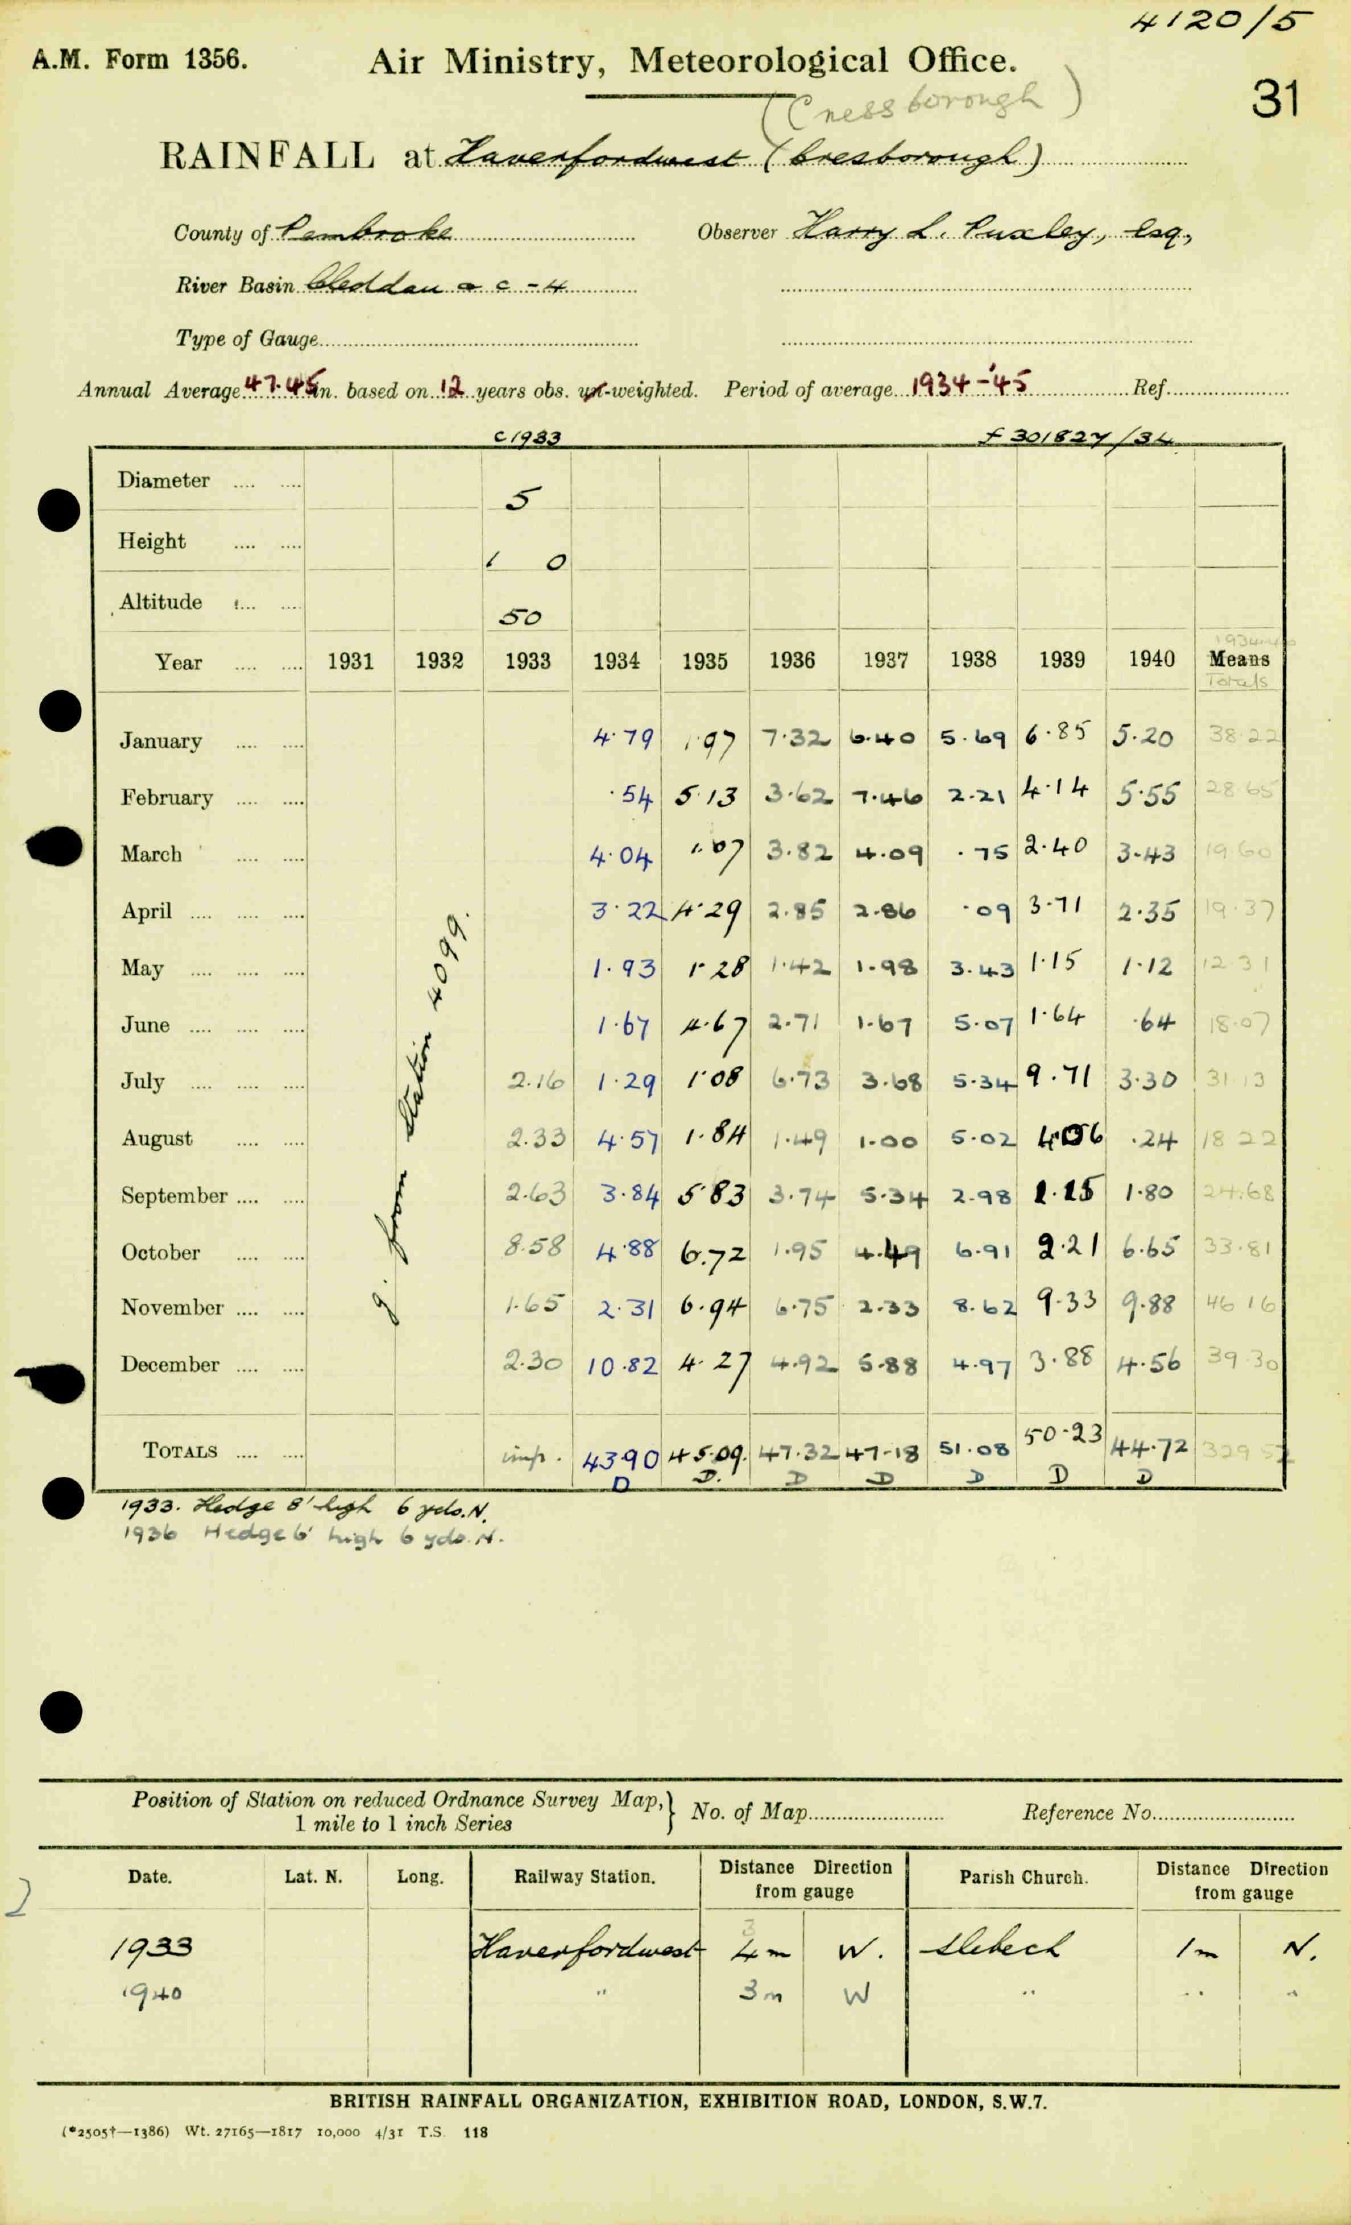 4120/5
A.M. Form 1356. Air Ministry, Meteorological Office.
31
(Cnessborough)
RAINFALL at Haverfordwest (Cresborough)
County of Pembroke Observer Harry L. Puxley, Esq,
River Basin Cleddau a c - 4
Type of Gauge
Annual Average 47.45 in. based on 12 years obs. un-weighted. Period of average 1934-'45 Ref.
c1933 f 301827/34
Diameter .... .... 5
Height .... .... 1 0
Altitude .... .... 50
Year .... .... 1931 1932 1933 1934 1935 1936 1937 1938 1939 1940 Means
Totals
January .... .... 4.79 1.97 7.32 6.40 5.69 6.85 5.20 38.22
February .... .... .54 5.13 3.62 7.46 2.21 4.14 5.55 28.65
March .... .... 4.04 1.07 3.82 4.09 .75 2.40 3.43 19.60
April .... .... .... 3.22 4.29 2.85 2.86 .09 3.71 2.35 19.37
May .... .... .... 1.93 1.28 1.42 1.98 3.43 1.15 1.12 12.31
June .... .... .... 1.67 4.67 2.71 1.67 5.07 1.64 .64 18.07
July .... .... .... 2.16 1.29 1.08 6.73 3.68 5.34 9.71 3.30 31.13
August .... .... 2.33 4.57 1.84 1.49 1.00 5.02 4.06 .24 18.22
September .... .... 2.63 3.84 5.83 3.74 5.34 2.98 1.15 1.80 24.68
October .... .... 8.58 4.88 6.72 1.95 4.49 6.91 2.21 6.65 33.81
November .... .... 1.65 2.31 6.94 6.75 2.33 8.62 9.33 9.88 46.16
December .... .... 2.30 10.82 4.27 4.92 5.88 4.97 3.88 4.56 39.30
TOTALS .... .... imp. 43.90 45.09. 47.32 47.18 51.08 50.23 44.72 329.52
D D. D D D D D
g. from station 4099.
1933. Hedge 8' high 6 yds. N.
1936 Hedge 6' high 6 yds. N.
Position of Station on reduced Ordnance Survey Map, } No. of Map Reference No.
1 mile to 1 inch Series
Date. Lat. N. Long. Railway Station. Distance Direction from gauge Parish Church. Distance Direction from gauge
2
3
1933 Haverfordwest 4m W. Slebech 1m N.
1940 " 3m W " " "
BRITISH RAINFALL ORGANIZATION, EXHIBITION ROAD, LONDON, S.W.7.
(*2505†—1386) Wt. 27165—1817 10,000 4/31 T.S. 118